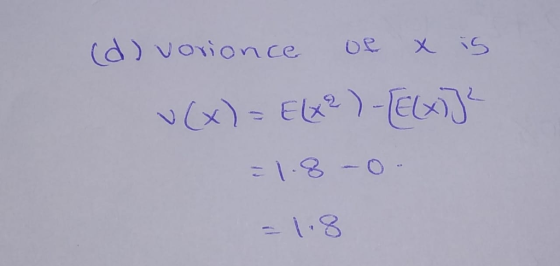 (d) vorionce of x is
v(x) = E(x²) - [E(x)]²
= 1.8 - 0.
= 1.8